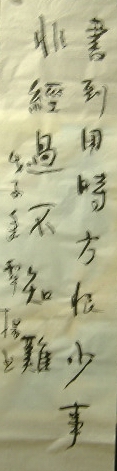 書到用時方恨少事
非經過不知難